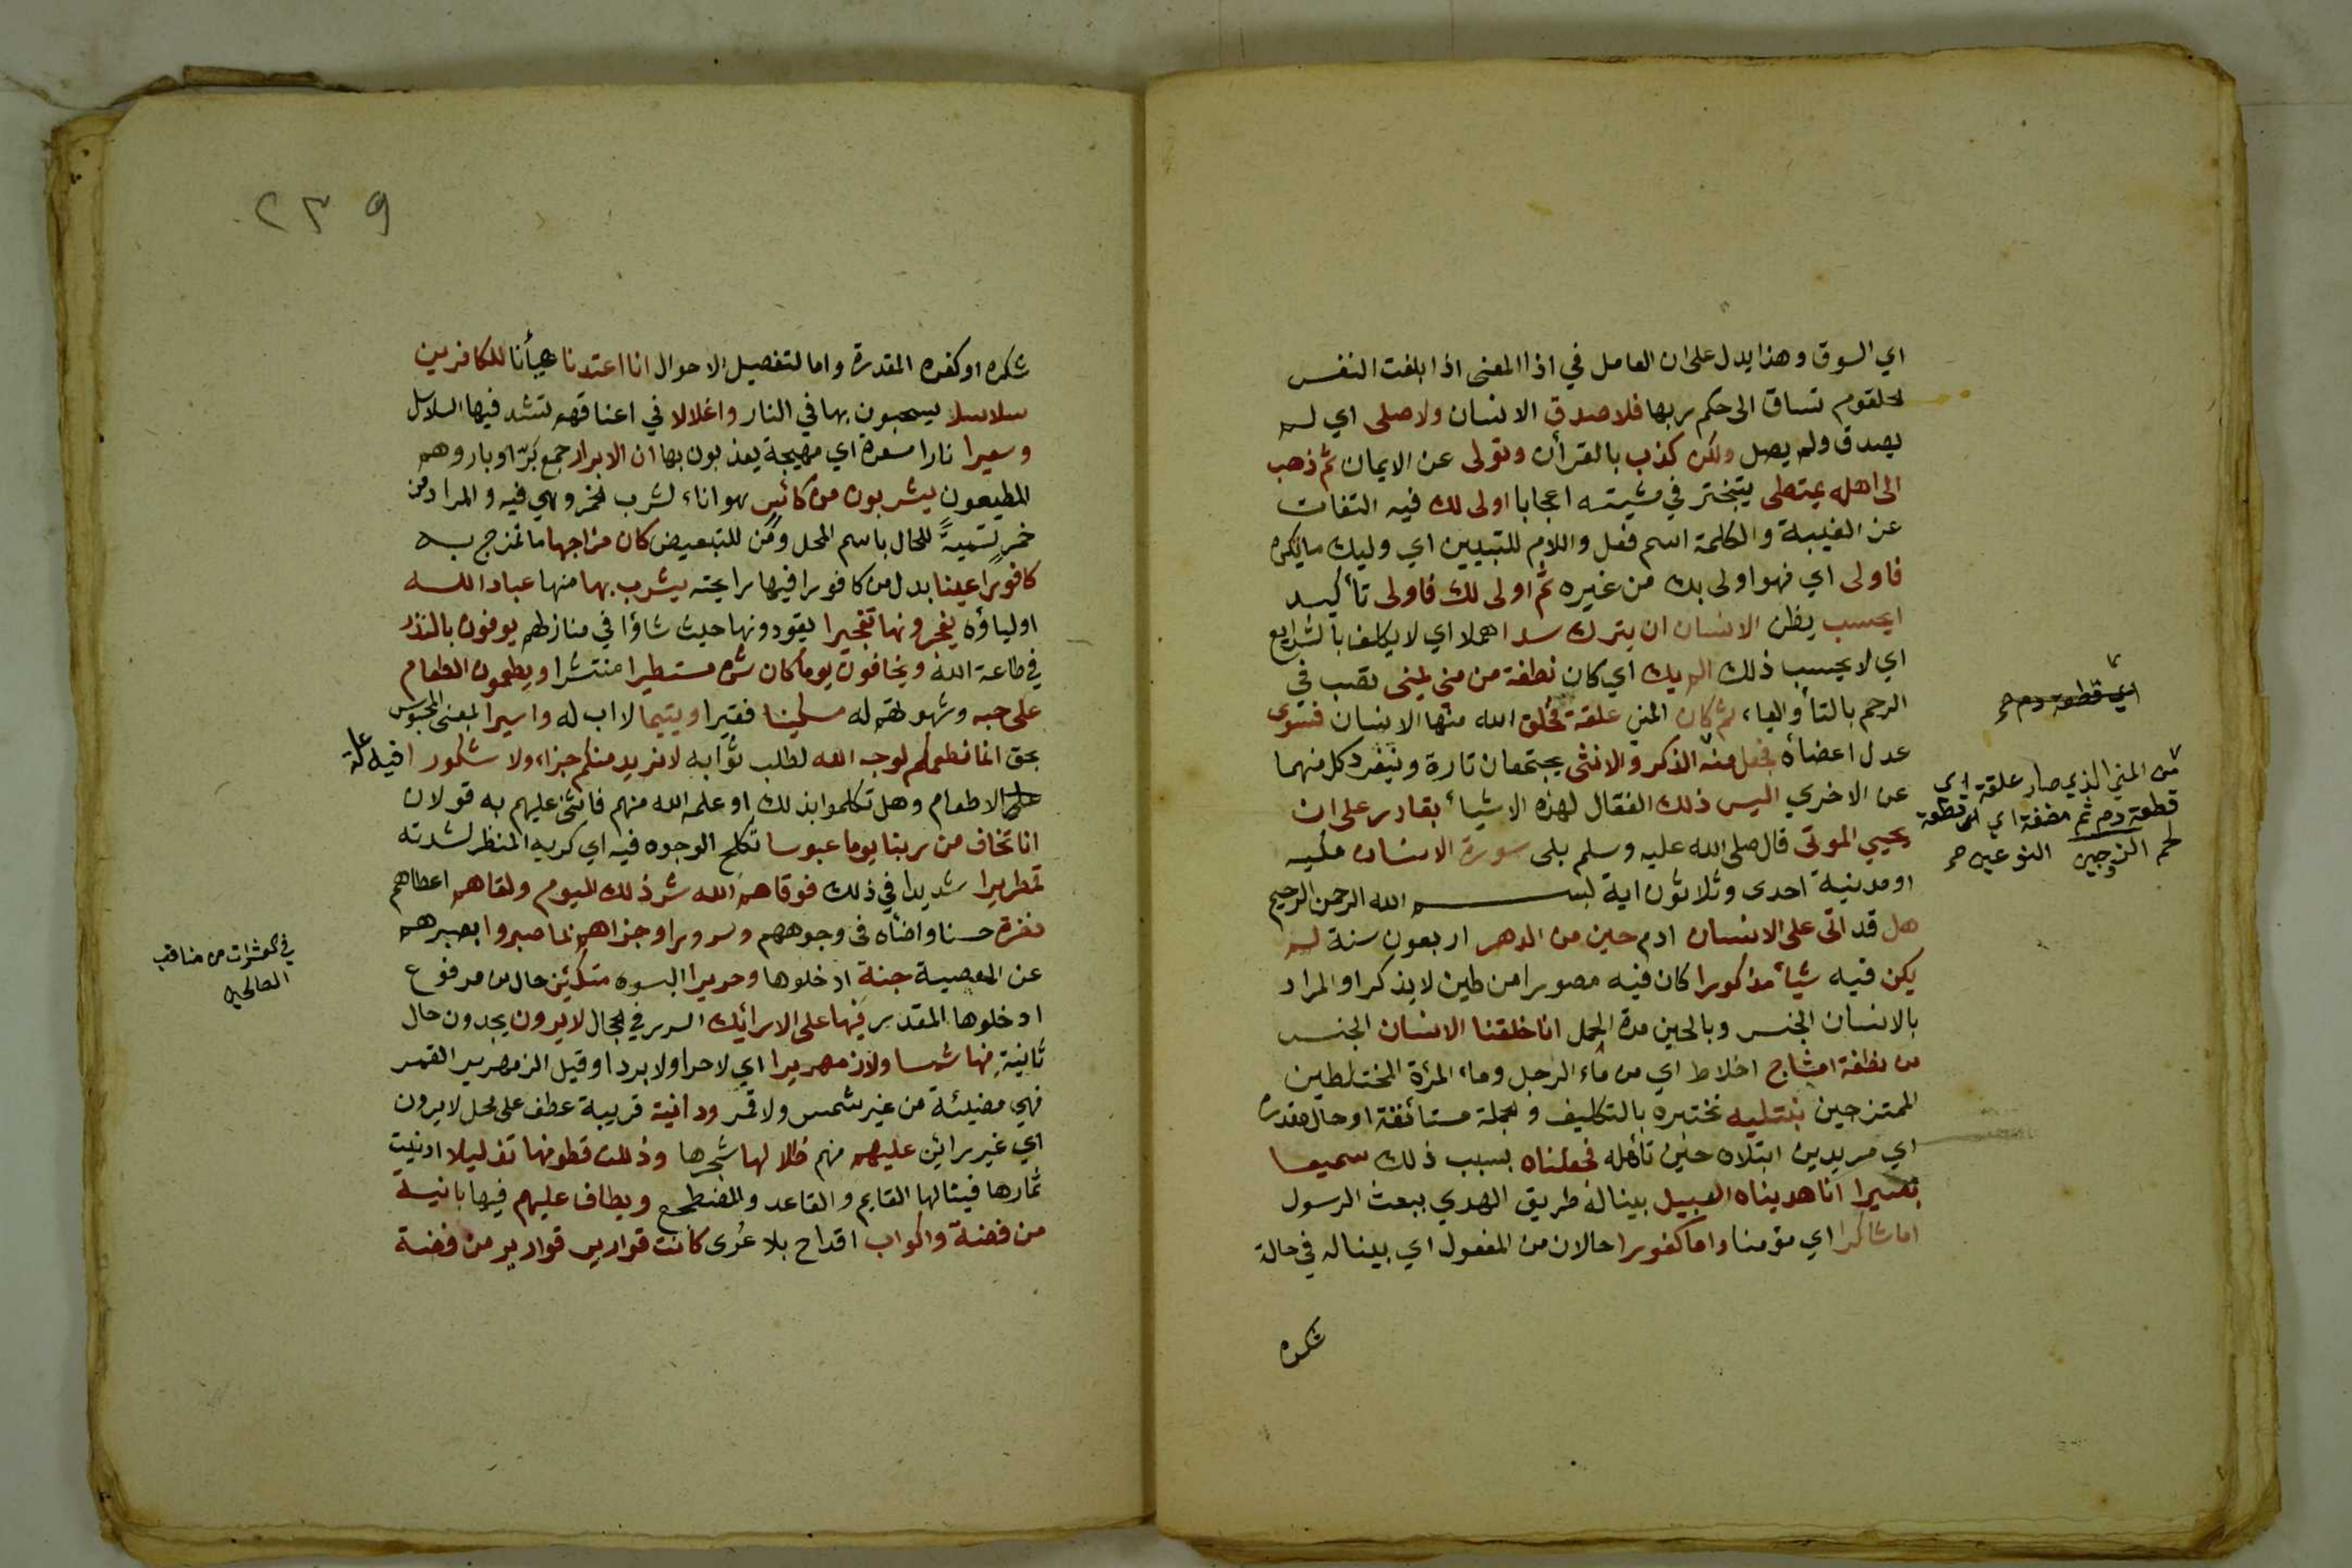 اي السوق وهذا يدل على ان العامل في اذا المعنى اذا بلغت النفس
الحلقوم تساق الى حكم ربها فلا صدق الانسان ولا صلى اي لم
يصدق ولم يصل ولكن كذب بالقرأن وتولى عن الايمان ثم ذهب
الى اهله يتمطى يتبختر في مشيته اعجابا اولى لك فيه التفات
عن الغيبة والكلمة اسم فعل واللام للتبيين اي وليك ما تكره
فاولى اي فهو اولى بك من غيره ثم اولى لك فاولى تأكيد
ايحسب يظن الانسان ان يترك سدا هملا اي لا يكلف بالشرايع
اي لا يحسب ذلك الم يك اي كان نطفة من مني يمنى تصب في
الرحم بالتأ واليا، ثم كان المني علقة فخلق الله منها الانسان فسوى
عدل اعضأه فجعل منه الذكر والانثى يجتمعان تارة وينفرد كل منهما
عن الاخري اليس ذلك الفقال لهذه الاشيأ بقادر على ان
يحيي الموتى قال صلى الله عليه وسلم بلى سورة الانسان مكيه
او مدنية احدى وثلاثون اية بسم الله الرحمن الرحيم
هل قد اتى على الانسان ادم حين من الدهر اربعون سنة لم
يكن فيه شيأ مذكورا كان فيه مصورا من طين لا يذكر او المراد
بالانسان الجنس وبالحين مدة الحمل انا خلقنا الانسان الجنس
من نطفة امشاج اخلاط اي من مأء الرجل وما، المرأة المختلطين
الممتزجين نبتليه نختبره بالتكليف والجملة مستأنفة او حال مقدرة
اي مريدين ابتلاه حين تأهله فجعلناه بسبب ذلك سميعا
بصيرا انا هديناه السبيل بينا له طريق الهدي ببعث الرسول
اما شاكرا اي مؤمنا واما كفورا حالان من المفعول اي بينا له في حالة
شكره
اي قطعة دم صح
من المني الذي صار علقة اي
قطعة دم ثم مضغة اي قطعة
لحم الزوجين النوعين صح
٢٣٩
شكره او كفره المقدرة واما لتفصيل الاحوال انا اعتدنا هيأنا للكافرين
سلاسلا يسحبون بها في النار واغلالا في اعناقهم تشد فيها السلاسل
وسعيرا نارا مسعرة اي مهيجة يعذبون بها ان الابرار جمع بَرّ او بار وهم
المطيعون يشربون من كائس هو اناء شرب الخمر وهي فيه والمراد من
خمر تسميةً للحال باسم المحل ومن للتبعيض كان مزاجها ما تمزج به
كافورًا عينا بدل من كافورا فيها رايحته يشرب بها منها عباد الله
اولياؤه يفجرونها تفجيرا يقودونها حيث شاؤا في منازلهم يوفون بالنذر
في طاعة الله ويخافون يوما كان شره مستطيرا منتشرا ويطعمون الطعام
على حبه وشهوتهم له مسكينا فقيرا ويتيما لا اب له واسيرا يعني المحبوس
بحق انما نطعمكم لوجه الله لطلب ثوابه لا نريد منكم جزاء، ولا شكورا فيه علة
على الاطعام وهل تكلموا بذلك او علمه الله منهم فاثنى عليهم به قولان
انا نخاف من ربنا يوما عبوسا تكلح الوجوه فيه اي كريه المنظر لشدته
قمطريرا شديدا في ذلك فوقاهم الله شر ذلك اليوم ولقاهم اعطاهم
نضرة حسنا واضأه في وجوههم وسرورا وجزاهم بما صبروا بصبرهم
عن المعصية جنة ادخلوها وحريرا البسوه متكئين حال من مرفوع
ادخلوها المقدر فيها على الارائك السرر في الحجال لا يرون يجدون حال
ثانية فيها شمسا ولا زمهريرا اي لا حرا ولا بردا وقيل الزمهرير القمر
فهي مضيئة من غير شمس ولا قمر ودانية قريبة عطف على محل لا يرون
اي غير رائين عليهم منهم ظلالها شجرها وذللت قطوفها تذليلا ادنيت
ثمارها فينالها القايم والقاعد والمضطجع ويطاف عليهم فيها بانية
من فضة واكواب اقداح بلا عُرى كانت قوارير قوارير من فضة
في من مناقب
الصالحين